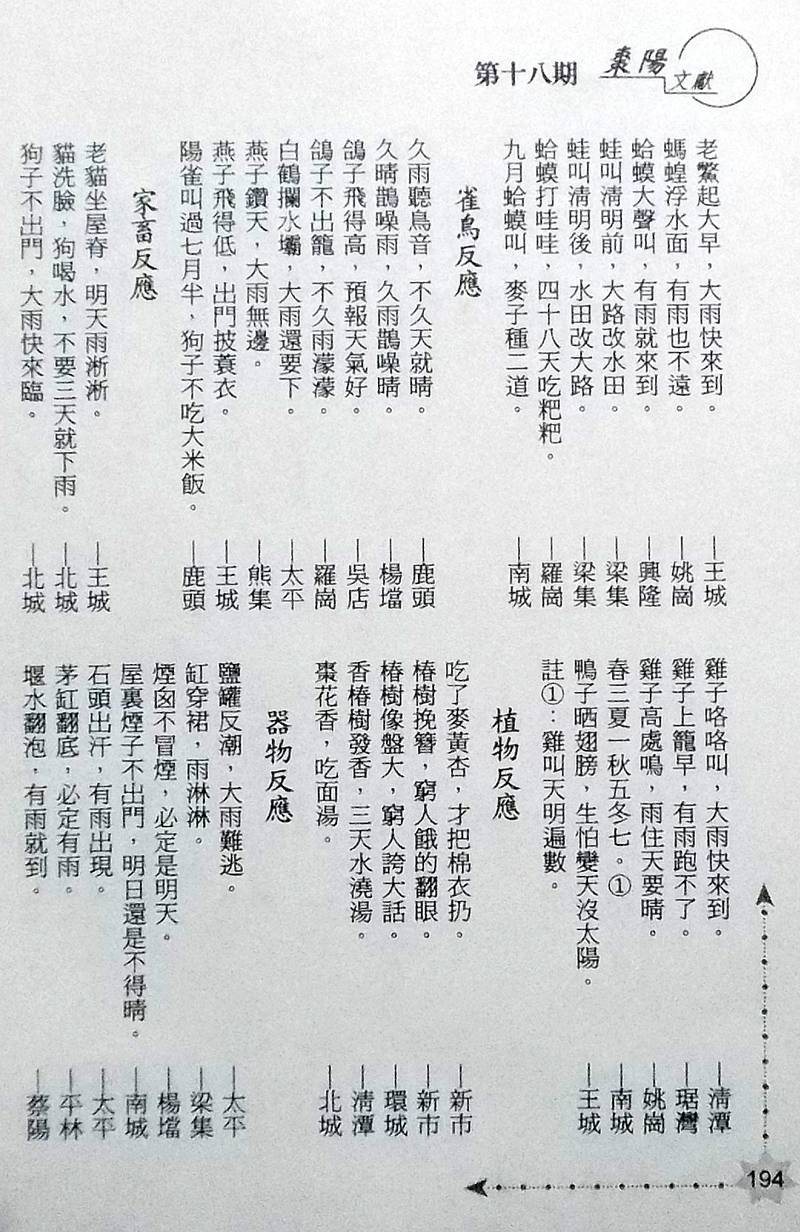 第十八期
棗陽
文獻
老鱉起大早，大雨快來到。 —王城
螞蝗浮水面，有雨也不遠。 —姚崗
蛤蟆大聲叫，有雨就來到。 —興隆
蛙叫清明前，大路改水田。 —梁集
蛙叫清明後，水田改大路。 —梁集
蛤蟆打哇哇，四十八天吃粑粑。 —羅崗
九月蛤蟆叫，麥子種二道。 —南城
雀鳥反應
久雨聽鳥音，不久天就晴。 —鹿頭
久晴鵲噪雨，久雨鵲噪晴。 —楊壋
鴿子飛得高，預報天氣好。 —吳店
鴿子不出籠，不久雨濛濛。 —羅崗
白鶴攔水壩，大雨還要下。 —太平
燕子鑽天，大雨無邊。 —熊集
燕子飛得低，出門披蓑衣。 —王城
陽雀叫過七月半，狗子不吃大米飯。 —鹿頭
家畜反應
老貓坐屋脊，明天雨淅淅。 —王城
貓洗臉，狗喝水，不要三天就下雨。 —北城
狗子不出門，大雨快來臨。 —北城
雞子咯咯叫，大雨快來到。 —清潭
雞子上籠早，有雨跑不了。 —琚灣
雞子高處鳴，雨住天要晴。 —姚崗
春三夏一秋五冬七。① —南城
鴨子晒翅膀，生怕變天沒太陽。 —王城
註①：雞叫天明遍數。
植物反應
吃了麥黃杏，才把棉衣扔。 —新市
椿樹挽簪，窮人餓的翻眼。 —新市
椿樹像盤大，窮人誇大話。 —環城
香椿樹發香，三天水澆湯。 —清潭
棗花香，吃面湯。 —北城
器物反應
鹽罐反潮，大雨難逃。 —太平
缸穿裙，雨淋淋。 —梁集
煙囪不冒煙，必定是明天。 —楊壋
屋裏煙子不出門，明日還是不得晴。 —南城
石頭出汗，有雨出現。 —太平
茅缸翻底，必定有雨。 —平林
堰水翻泡，有雨就到。 —蔡陽
194